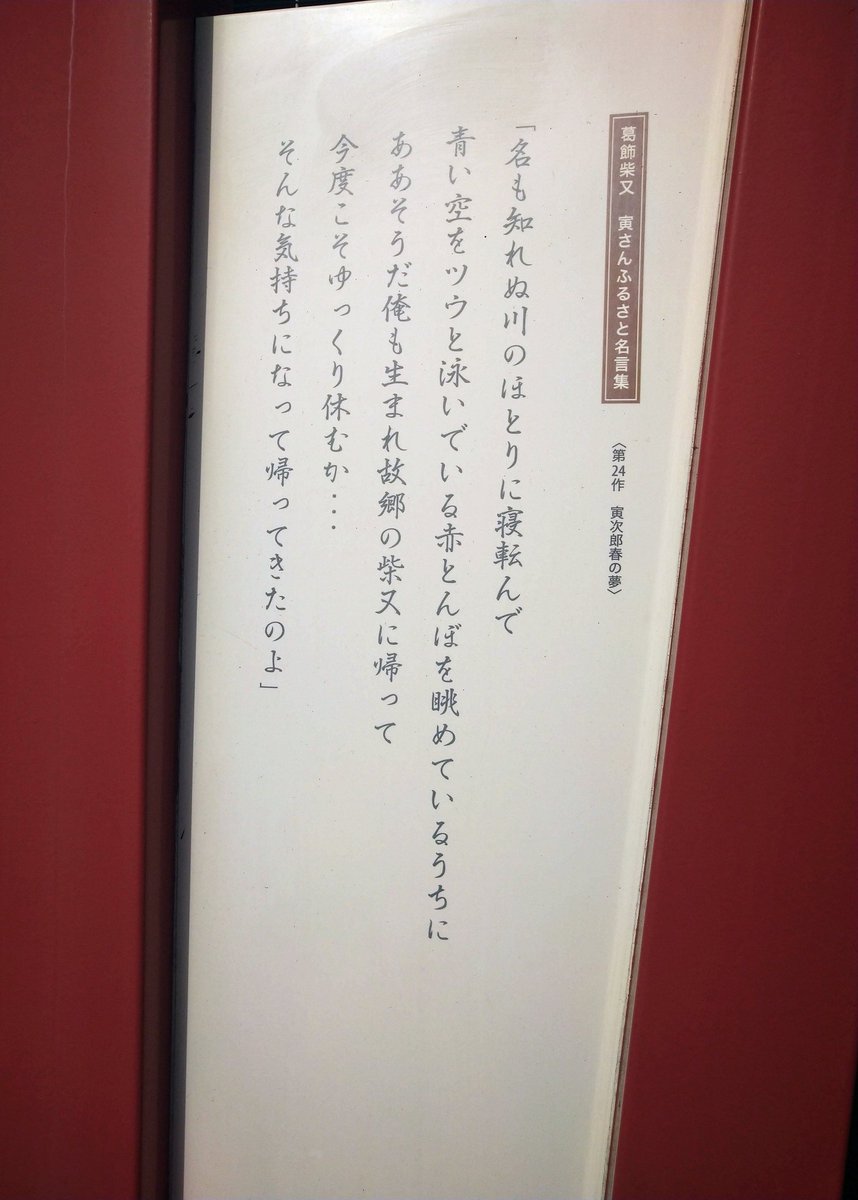 葛飾柴又 寅さんふるさと名言集
〈第24作 寅次郎春の夢〉
「名も知れぬ川のほとりに寝転んで
青い空をツウと泳いでいる赤とんぼを眺めているうちに
ああそうだ俺も生まれ故郷の柴又に帰って
今度こそゆっくり休むか・・・
そんな気持ちになって帰ってきたのよ」